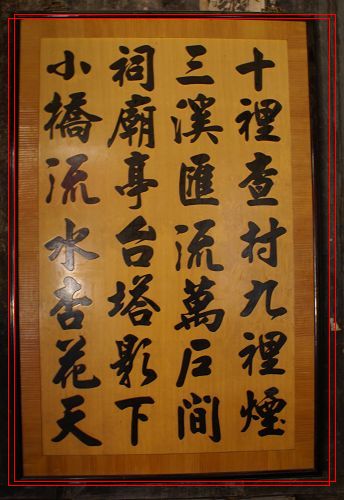 十裡查村九裡煙
三溪匯流萬戶間
祠廟亭台塔影下
小橋流水杏花天